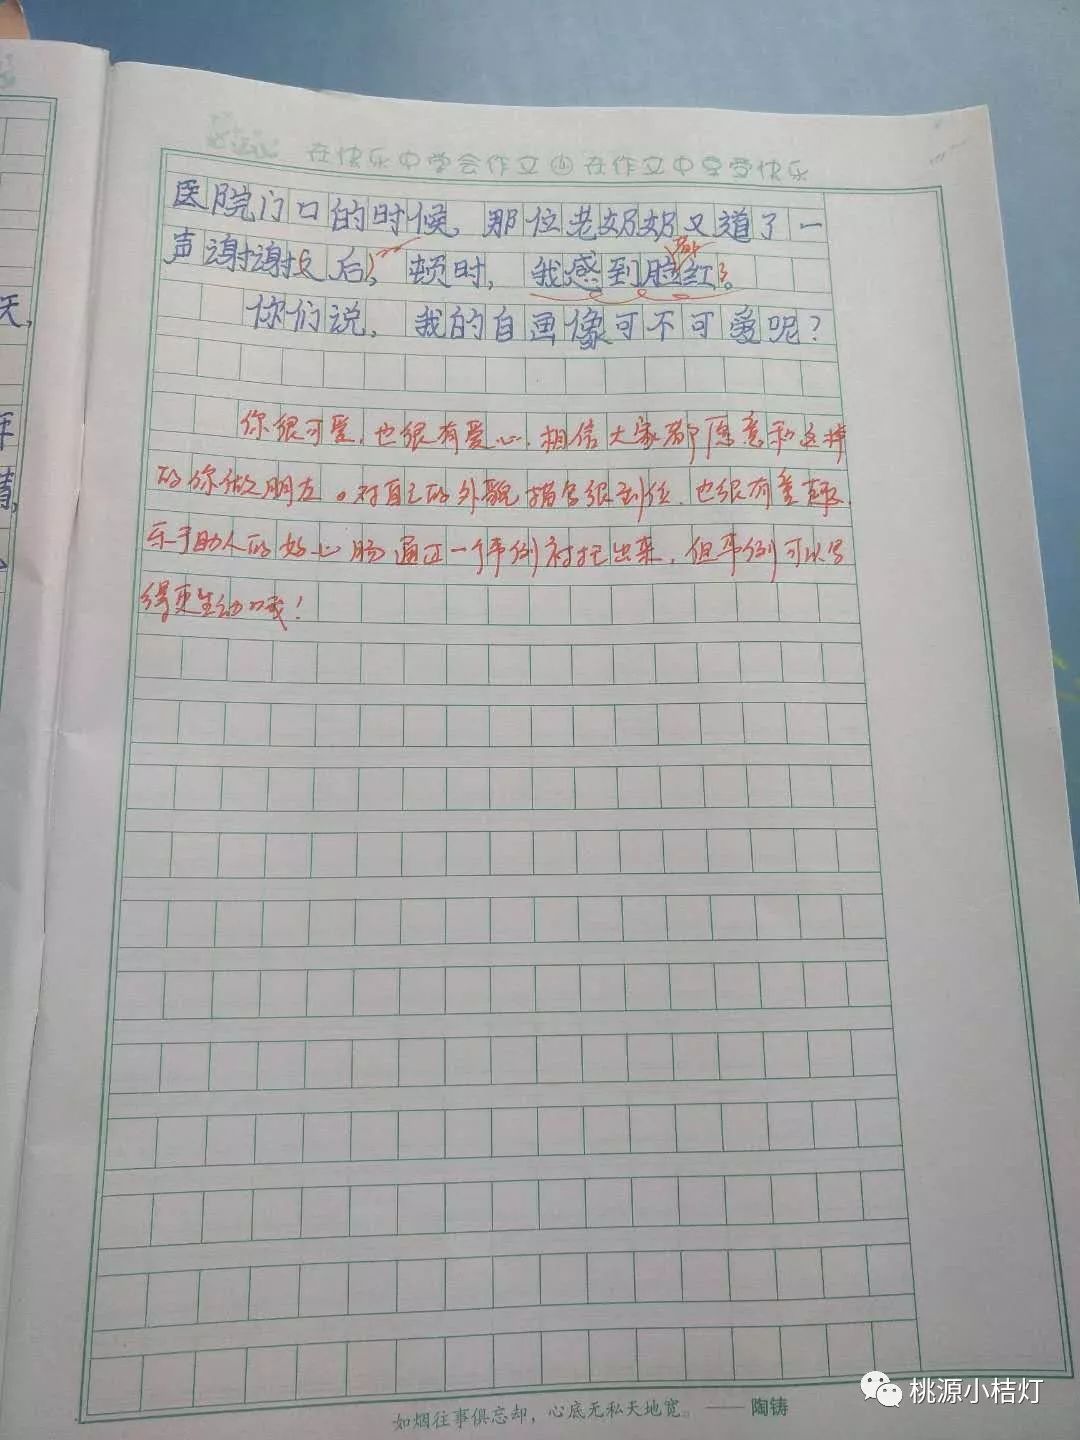 在快乐中学会作文 在作文中享受快乐
医院门口的时候，那位老奶奶又道了一
声谢谢后，顿时，我感到脸都红了。
你们说，我的自画像可不可爱呢？
你很可爱，也很有爱心，相信大家都愿意和这样
的你做朋友。对自己的外貌描写很到位，也很有童趣，
乐于助人的好心肠通过一个事例衬托出来，但事例可以写
得更生动哦！
天，
如烟往事俱忘却，心底无私天地宽。——陶铸
桃源小桔灯